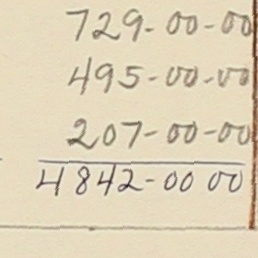 729-00-00
495-00-00
207-00-00
4842-00 00